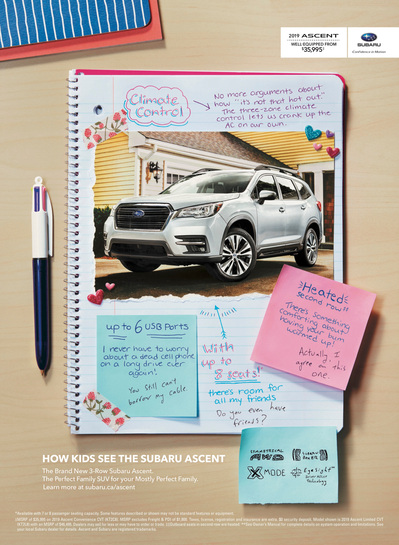 2019 ASCENT
WELL EQUIPPED FROM
$35,995†
SUBARU
Confidence in Motion
Climate
Control
No more arguments about
how "it's not that hot out"
The three-zone climate
control lets us crank up the
AC on our own.
Heated
second row!!
There's something
comforting about
having your bum
warmed up!
Actually, I
agree on this
one.
up to 6 USB Ports
I never have to worry
about a dead cell phone
on a long drive ever
again!
You still can't
borrow my cable
With
up to
8 seats!
there's room for
all my friends
Do you even have
friends?
SUBARU
AWD
X MODE
EyeSight
HOW KIDS SEE THE SUBARU ASCENT
The Brand New 3-Row Subaru Ascent.
The Perfect Family SUV for your Mostly Perfect Family.
Learn more at subaru.ca/ascent